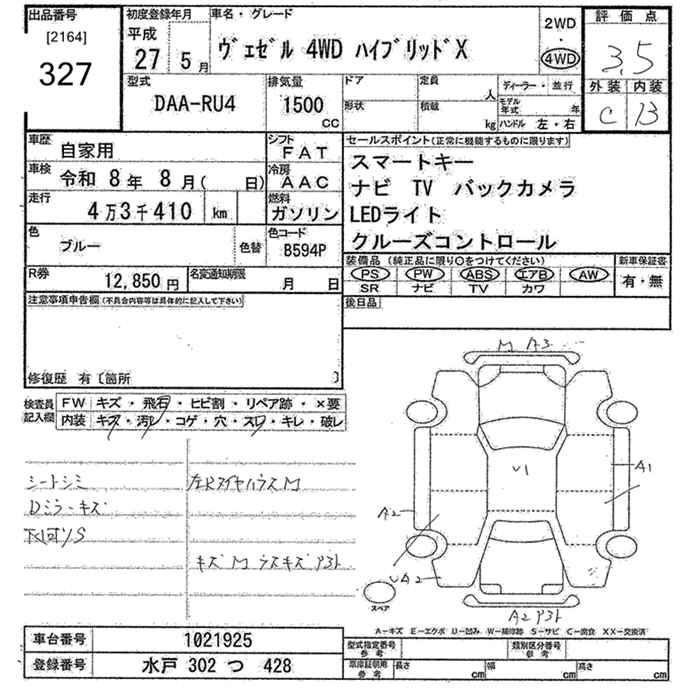 出品番号
[2164]
327
初度登録年月
平成
27 5月
車名・グレード
ヴェゼル 4WD ハイブリッドX
2WD
・
4WD
評価点
3.5
外装 内装
C B
型式
DAA-RU4
排気量
1500
CC
ドア
定員
人
形状
積載
kg
ディーラー・並行
モデル年式 年
ハンドル 左・右
車歴
自家用
シフト
FAT
車検
令和 8年 8月( 日)
冷房
AAC
走行
4万3千410 km
燃料
ガソリン
色
ブルー
色替
色コード
B594P
R券
12,850円
名変通知期限
月 日
セールスポイント(正常に機能するものに限ります)
スマートキー
ナビ TV バックカメラ
LEDライト
クルーズコントロール
装備品(純正品に限り○をつけてください)
PS PW ABS エアB AW
SR ナビ TV カワ
新車保証書
有・無
後日品
注意事項申告欄(不具合内容等は具体的に記入して下さい)
修復歴 有〔箇所 〕
検査員記入欄
FW キズ・飛石・ヒビ割・リペア跡・×要
内装 キズ・汚レ・コゲ・穴・スレ・キレ・破レ
シートシミ
Dミラーキズ
下回りS
左Rタイヤハウス M
キズ M ラスキズ
M A3
U1
A1
A2
UA2
A2
スペア
A―キズ E―エクボ U―凹み W―補修跡 S―サビ C―腐食 XX―交換済
車台番号
1021925
登録番号
水戸 302 つ 428
型式指定番号
参考
類別区分番号
参考
車庫証明用
参考
長さ cm
幅 cm
高さ cm